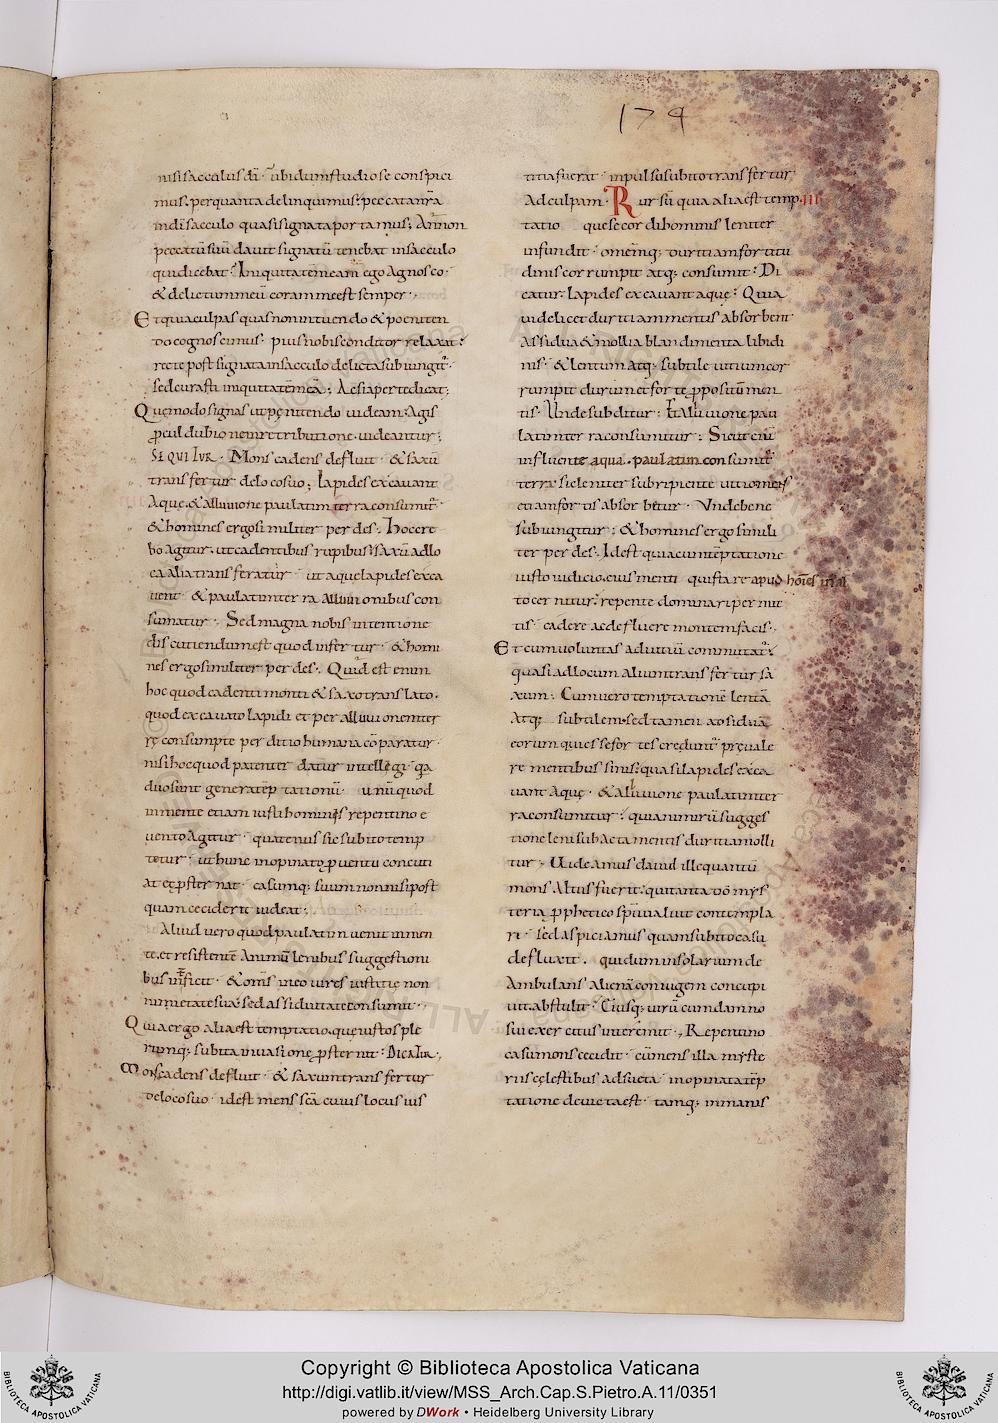 179
nisi sacculus dī · ubi dum studiose conspici
mus · per quanta delinquimus · peccata n̄ra
in dī sacculo quasi signata portamus ; An non
peccatū suū david signatū tenebat in sacculo
qui dicebat · Iniquitatem eam ego agnosco ·
& delictum meū coram me est semper ·
Et quia culpas quas nos intuendo & poeniten
do cognoscimus · pius nobis conditor relaxat :
recte post signata in sacculo delicta subiungit̄ ·
sed curasti iniquitatēmeā ; Ac si aperte dicat ;
Que modo signas ut pęnitendo videam · Agis
ꝓcul dubio ne in retributione videantur ;
SEQUITUR · Mons cadens defluit · & saxū
transfertur de loco suo ; Lapides excavant
aque · & alluvione paulatim terra consumit̄ ·
& homines ergo similiter perdes · Hoc ere
bo agitur · ut cadentibus rupibus · saxū ad lo
ca alia transferatur · ut aque lapides exca
vent · & paulatim terra alluvionibus con
sumatur · Sed magna nobis intentione
discutiendum est quod infertur · & homi
nes ergo similiter perdes · Quid est enim
hoc quod cadenti monti & saxo translato ·
quod excavato lapidi et per alluvionem ter
rę consumptę perditio humana cōparatur ·
nisi hoc quod patenter datur intellegi · q̄a
duo sunt genera tēptationū · unū quod
in mente etiam iusti hominis repentino e
vento agitur · quatenus sic subito temp
tetur · ut hunc inopinato ꝓventu concuti
at et ꝓsternat · casumq; suum non nisi post
quam ceciderit videat ;
Aliud vero quod paulatim venit in men
te · et resistentē animū lenibus suggestioni
bus inficit · & om̄s in eo vires iustitię non
nimietate sua · sed assiduitate consumit ·
Quia ergo alia est temptatio · que iustos ple
rumq; subita invasione ꝓsternit · DICATUR ·
Mons cadens defluit · & saxum transfertur
de loco suo · id est mens sc̄a cuius locus ius
titia fuerat · inpulsu subito transfertur
Ad culpam · Rursū quia alia est temp III
tatio quę se cordi hominis leniter
infundit · omēmq; duritiam fortitu
dinis corrumpit atq; consumit · Di
catur · lapides excavant aquę · Quia
videlicet duritiam mentis absorbent
assidua & mollia blandimenta libidi
nis · & lentum atq; subtile vitium cor
rumpit durum et forte ꝓpositū men
tis · Unde subditur · Et alluvione pau
latim terra consumitur ; Sicut enī
influente aqua · paulatim consumit̄
terra · sic leniter subripiente vitio mens
etiam fortis absorbetur · Unde bene
subiungitur ; & homines ergo simili
ter perdes · Id est quia cum tēptatione
iusto iudicio · eius menti qui stare apud hoīes
to cernitur · repente dominari permit
tis · cadere ac defluere montem facis ·
Et cum voluntas ad vitiū commutat̄ ·
quasi ad locum alium transfertur sa
xum · Cum vero temptationē lentā
atq; subtilem · sed tamen assiduā
eorum qui esse fortes creduntur pręvale
re mentibus sinis · quasi lapides exca
vant aquę · & alluvione paulatim ter
ra consumitur · quia nimirū sugges
tione leni subacta mentis duritia molli
tur · Videamus david ille quantū
mons altus fuerit · qui tanta dō mys
teria ꝓphetico sp̄u valuit contempla
ri · sed aspiciamus quam subito casu
defluxit · qui dum in solarium de
ambulans aliena coniugem concupi
vit · abstulit · Eiusq; virū cum damno
sui exercitus interemit · Repentino
casu mons cecidit · cū mens illa myste
riis cęlestibus adsueta · inopinata tēp
tatione devicta est · tamq; inmanis
Copyright © Biblioteca Apostolica Vaticana
http://digi.vatlib.it/view/MSS_Arch.Cap.S.Pietro.A.11/0351
powered by DWork • Heidelberg University Library